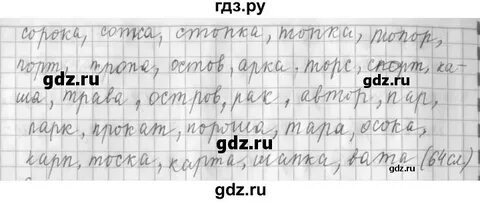 гдз.ру
сорока, сотка, стопка, топка, топор,
торт, тропа, остов, арка, торс, спорт, ка-
gdz.ru gdz.ru
ша, трава, остров, рак, автор, пар,
парк, прокат, пороша, тара, осока,
gdz.ru gdz.ru
карп, тоска, карта, шапка, вата (64сл)
gdz.ru gdz.ru